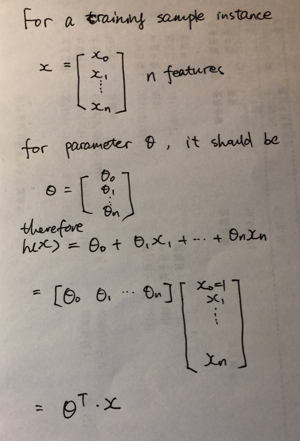 For a training sample instance
x = [x₀ x₁ ⋮ xₙ] n features
for parameter θ, it should be
θ = [θ₀ θ₁ ⋮ θₙ]
therefore
h(x) = θ₀ + θ₁x₁ + ⋯ + θₙxₙ
= [θ₀ θ₁ ⋯ θₙ] [x₀=1 x₁ ⋮ xₙ]
= θᵀ · x